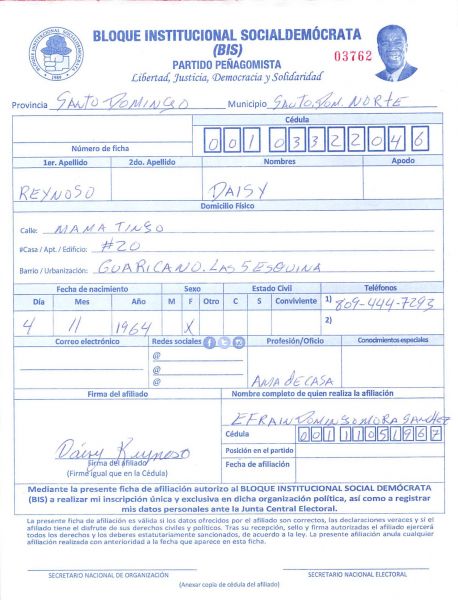 BLOQUE INSTITUCIONAL SOCIALDEMÓCRATA
(BIS)
PARTIDO PEÑAGOMISTA
Libertad, Justicia, Democracia y Solidaridad
03762
Provincia SANTO DOMINGO Municipio SANTO. DOM. NORTE
Número de ficha Cédula 001 0332204 6
1er. Apellido 2do. Apellido Nombres Apodo
REYNOSO DAISY
Domicilio Físico
Calle: MAMA TINGO
#Casa / Apt. / Edificio: #20
Barrio / Urbanización: GUARICANO. LAS 5 ESQUINA
Fecha de nacimiento Sexo Estado Civil Teléfonos
Día Mes Año M F Otro C S Conviviente 1) 809-444-7293
4 11 1964 X 2)
Correo electrónico Redes sociales Profesión/Oficio Conocimientos especiales
@
@
@
AMA DE CASA
Firma del afiliado Nombre completo de quien realiza la afiliación
EFRAIN DOMINGO MORA SANCHEZ
Cédula 00111051967
Daisy Reynoso
Firma del afiliado
(Firme igual que en la Cédula)
Posición en el partido
Fecha de afiliación
Mediante la presente ficha de afiliación autorizo al BLOQUE INSTITUCIONAL SOCIAL DEMÓCRATA
(BIS) a realizar mi inscripción única y exclusiva en dicha organización política, así como a registrar
mis datos personales ante la Junta Central Electoral.
La presente ficha de afiliación es válida si los datos ofrecidos por el afiliado son correctos, las declaraciones veraces y si el
afiliado tiene el disfrute de sus derechos civiles y políticos. Tras su recepción, sello y firma autorizados el afiliado ejercerá
todos los derechos y los deberes estatutariamente sancionados, de acuerdo a la ley. La presente afiliación anula cualquier
afiliación realizada con anterioridad a la fecha que aparece en esta ficha.
SECRETARIO NACIONAL DE ORGANIZACIÓN SECRETARIO NACIONAL ELECTORAL
(Anexar copia de cédula del afiliado)